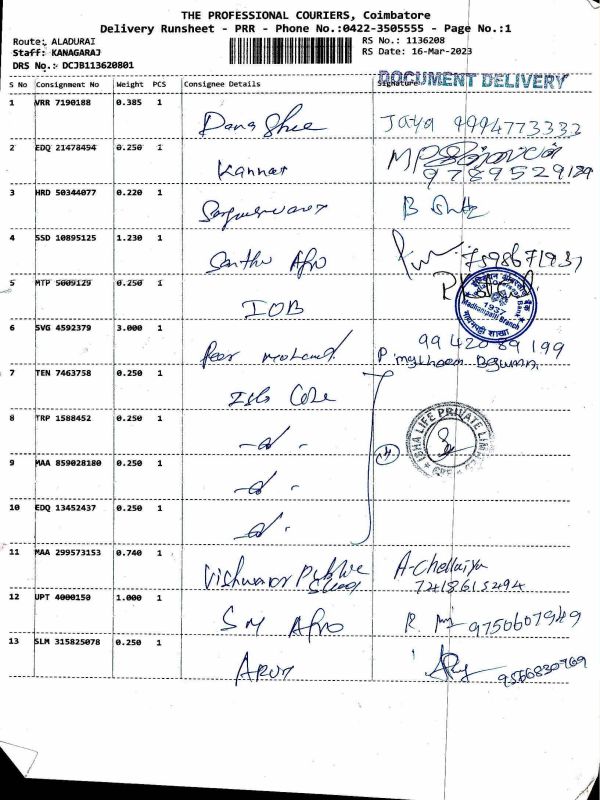 THE PROFESSIONAL COURIERS, Coimbatore
Delivery Runsheet - PRR - Phone No.:0422-3505555 - Page No.:1
Route: ALADURAI
RS No.: 1136208
Staff: KANAGARAJ
RS Date: 16-Mar-2023
DRS No.: DCJB113620801
DOCUMENT DELIVERY
S No Consignment No Weight PCS Consignee Details Signature
1 VRR 7190188 0.385 1
Dana Shree Jaya 9994773332
2 EDQ 21478494 0.250 1
Kannan 9789529129
3 HRD 50344077 0.220 1
B
4 SSD 10895125 1.230 1
Santhu Afro 7598671937
5 MTP 5009129 0.250 1
IOB
1937
Madhampatti Branch
6 SVG 4592379 3.000 1
Peer Mohamed 9942089199
P
7 TEN 7463758 0.250 1
8 TRP 1588452 0.250 1
ISHA LIFE PRIVATE LIMITED
9 MAA 859028180 0.250 1
10 EDQ 13452437 0.250 1
11 MAA 299573153 0.740 1
A-Chellaiya
7418615494
12 UPT 4000150 1.000 1
SM Afro R 9750607949
13 SLM 315825078 0.250 1
Arun 9566830769